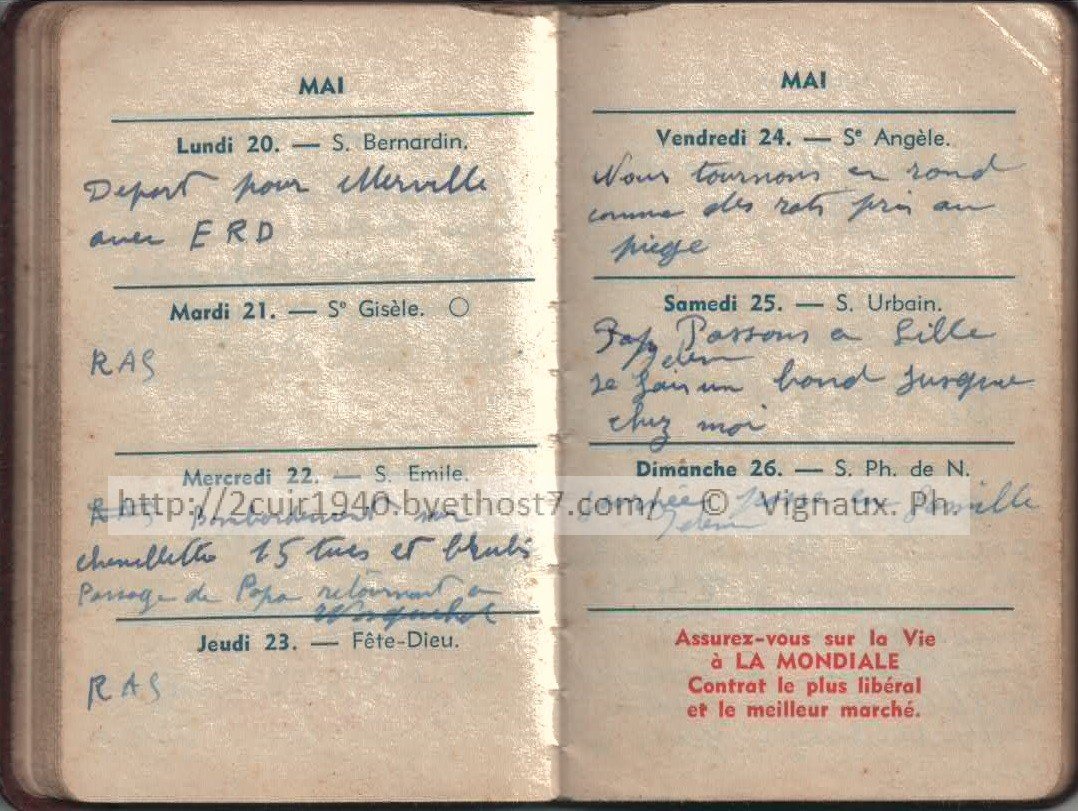 MAI
Lundi 20. — S. Bernardin.
Depart pour Merville
avec ERD
Mardi 21. — Sᵉ Gisèle.
RAS
Mercredi 22. — S. Emile.
RAS Bombardement sur
chenillette 15 tues et blessés
Passage de Papa retournant a
Jeudi 23. — Fête-Dieu.
RAS
MAI
Vendredi 24. — Sᵉ Angèle.
Nous tournons en rond
comme des rats pris au
piege
Samedi 25. — S. Urbain.
Passons a Lille
Je fais un bond jusque
chez moi
Dimanche 26. — S. Ph. de N.
http://2cuir1940.byethost7.com/ © Vignaux. Ph.
Assurez-vous sur la Vie
à LA MONDIALE
Contrat le plus libéral
et le meilleur marché.